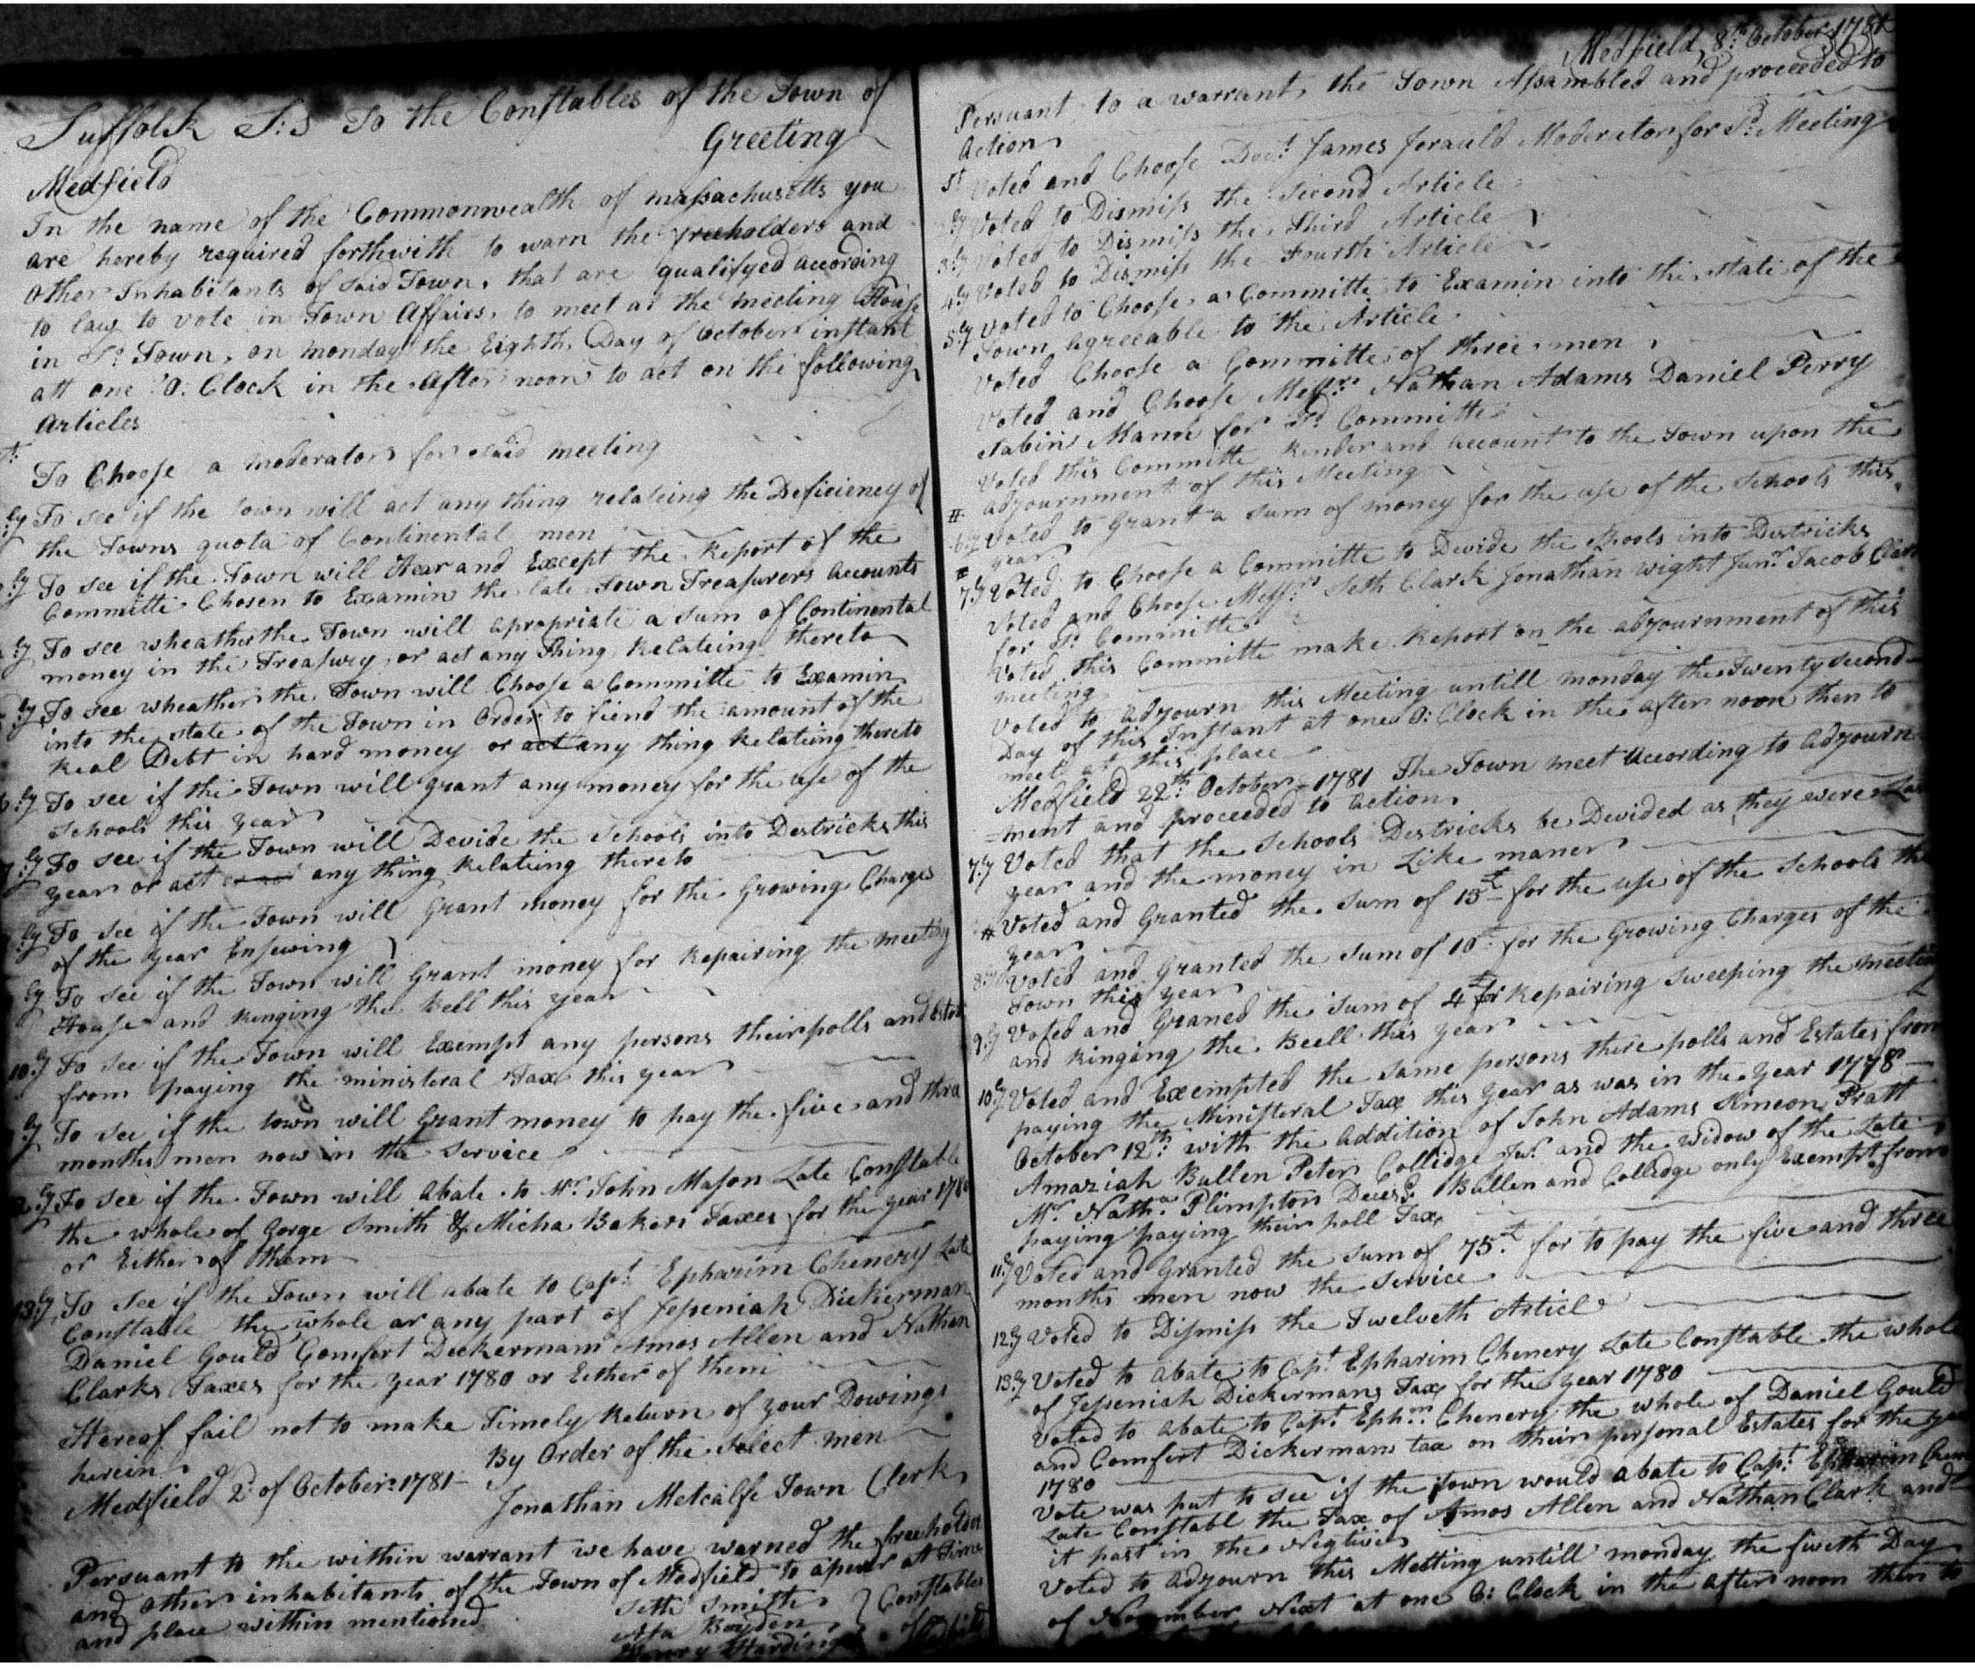 Suffolk S:s To the Constables of the Town of
Greeting
Medfield
In the name of the Commonwealth of massachusetts you
are hereby required forthwith to warn the freeholders and
other Inhabitants of said Town, that are qualifyed according
to law to vote in Town Affairs, to meet at the meeting House
in Sd: Town, on monday the Eighth Day of October instant
att one O: Clock in the After noon to act on the following
Articles
To Choose a moderator for said meeting
To see if the town will act any thing relateing the Deficiency of
the Towns quota of Continental men
To see if the Town will Hear and Except the Report of the
Committe Chosen to Examin the late Town Treasurers accounts
To see wheather the Town will apropriate a sum of Continental
money in the Treasury, or act any Thing Relateing thereto
To see wheather the Town will Choose a Committe to Examin
into the state of the Town in Order to fiend the amount of the
Real Debt in hard money or act any thing Relateing thereto
6:ly To see if the Town will grant any money for the use of the
Schools this year
7:ly To see if the Town will Devide the Schools into Destricks this
year or act any thing Relateing thereto
:ly To see if the Town will Grant money for the Growing Charges
of the year Ensewing
:ly To see if the Town will Grant money for Repairing the meeting
House and Ringing the Bell this year
10:ly To see if the Town will Exempt any persons their polls and Estat
from paying the ministeral Tax this year
:ly To see if the town will Grant money to pay the five and three
months men now in the service
:ly To see if the Town will abate to Mr John Mason Late Constable
the whole of Gorge Smith & Micha Bakers Taxes for the year 1780
or Either of them
13:ly To see if the Town will abate to Capt Epharim Chenery Late
Constable the whole or any part of Jepeniah Dickerman
Daniel Gould Comfort Dickermam Amos Allen and Nathan
Clarks Taxes for the year 1780 or Either of them
Hereof fail not to make Timely Return of your Dowings
herein By Order of the Select men
Medfield 2d of October 1781
Jonathan Metcalfe Town Clerk
Persuant to the within warrant we have warned the freeholders
and other inhabitants of the Town of Medfield to apear att time
and place within mentioned
Seth Smith } Constables
Asa Boyden
Henry Harding of Medfield
Medfield 8th: October 1781
Persuant to a warrant, the Town Assambled and proceeded to
Action
1st Voted and Choose Doct: James Jerauld Moderator for Sd: Meeting
:ly Voted to Dismiss the Second Article
3:ly Voted to Dismiss the Third Article
4:ly Voted to Dismiss the Fourth Article
5:ly Voted to Choose a Committe to Examin into the state of the
Town agreeable to the Article
Voted Choose a Committe of three men
Voted and Choose Messrs Nathan Adams Daniel Perry
Sabin Mann for Sd Committe
Voted this Committe Render and account to the Town upon the
adjournment of this Meeting
# 6:ly Voted to Grant a sum of money for the use of the Schools this
# year
7:ly Voted to Choose a Committe to Devide the Shools into Destricks
Voted and Choose Messrs Seth Clark Jonathan wight Junr Jacob Clark
for Sd: Committe
Voted this Committe make Report on the adjournment of this
meeting
Voted to adjourn this Meeting untill monday the Twenty second
Day of this Instant at one O: Clock in the after noon then to
meet at this place
Medfield 22th October 1781 The Town meet according to adjourn
=ment and proceeded to action
7:ly Voted that the Schools Destricks be Devided as they were Last
year and the money in Like maner
# Voted and Granted the sum of 15£ for the use of the Schools this
year
8:ly Voted and Granted the sum of 10£ for the Growing Charges of the
Town this year
9:ly Voted and Graned the sum of 4£ for Repairing Sweeping the meeting
and Ringing the Beell this year
10:ly Voted and Exempted the same persons there polls and Estates from
paying the Ministeral Tax this year as was in the year 1778
October 12th with the addition of John Adams Simeon Pratt
Amaziah Bullen Peter Collidge Jur. and the widow of the Late
Mr Natha. Plimpton Deces'd Bullen and Collidge only Exempt from
paying paying their poll Tax
11:ly Voted and Granted the sum of 75£ for to pay the five and three
months men now the service
12:ly Voted to Dismiss the Twelveth Article
13:ly Voted to Abate to Capt Epharim Chenery Late Constable the whole
of Jepeniah Dickermans Tax for the year 1780
Voted to abate to Capt Ephm Chenery the whole of Daniel Gould
and Comfort Dickermans tax on their personal Estates for the year
1780
Vote was put to see if the town would abate to Capt: Epharim Chenery
Late Constabl the Tax of Amos Allen and Nathan Clark and
it past in the Negtive
Voted to Adjourn this Metting untill monday the fiveth Day
of November Next at one O: Clock in the after noon then to